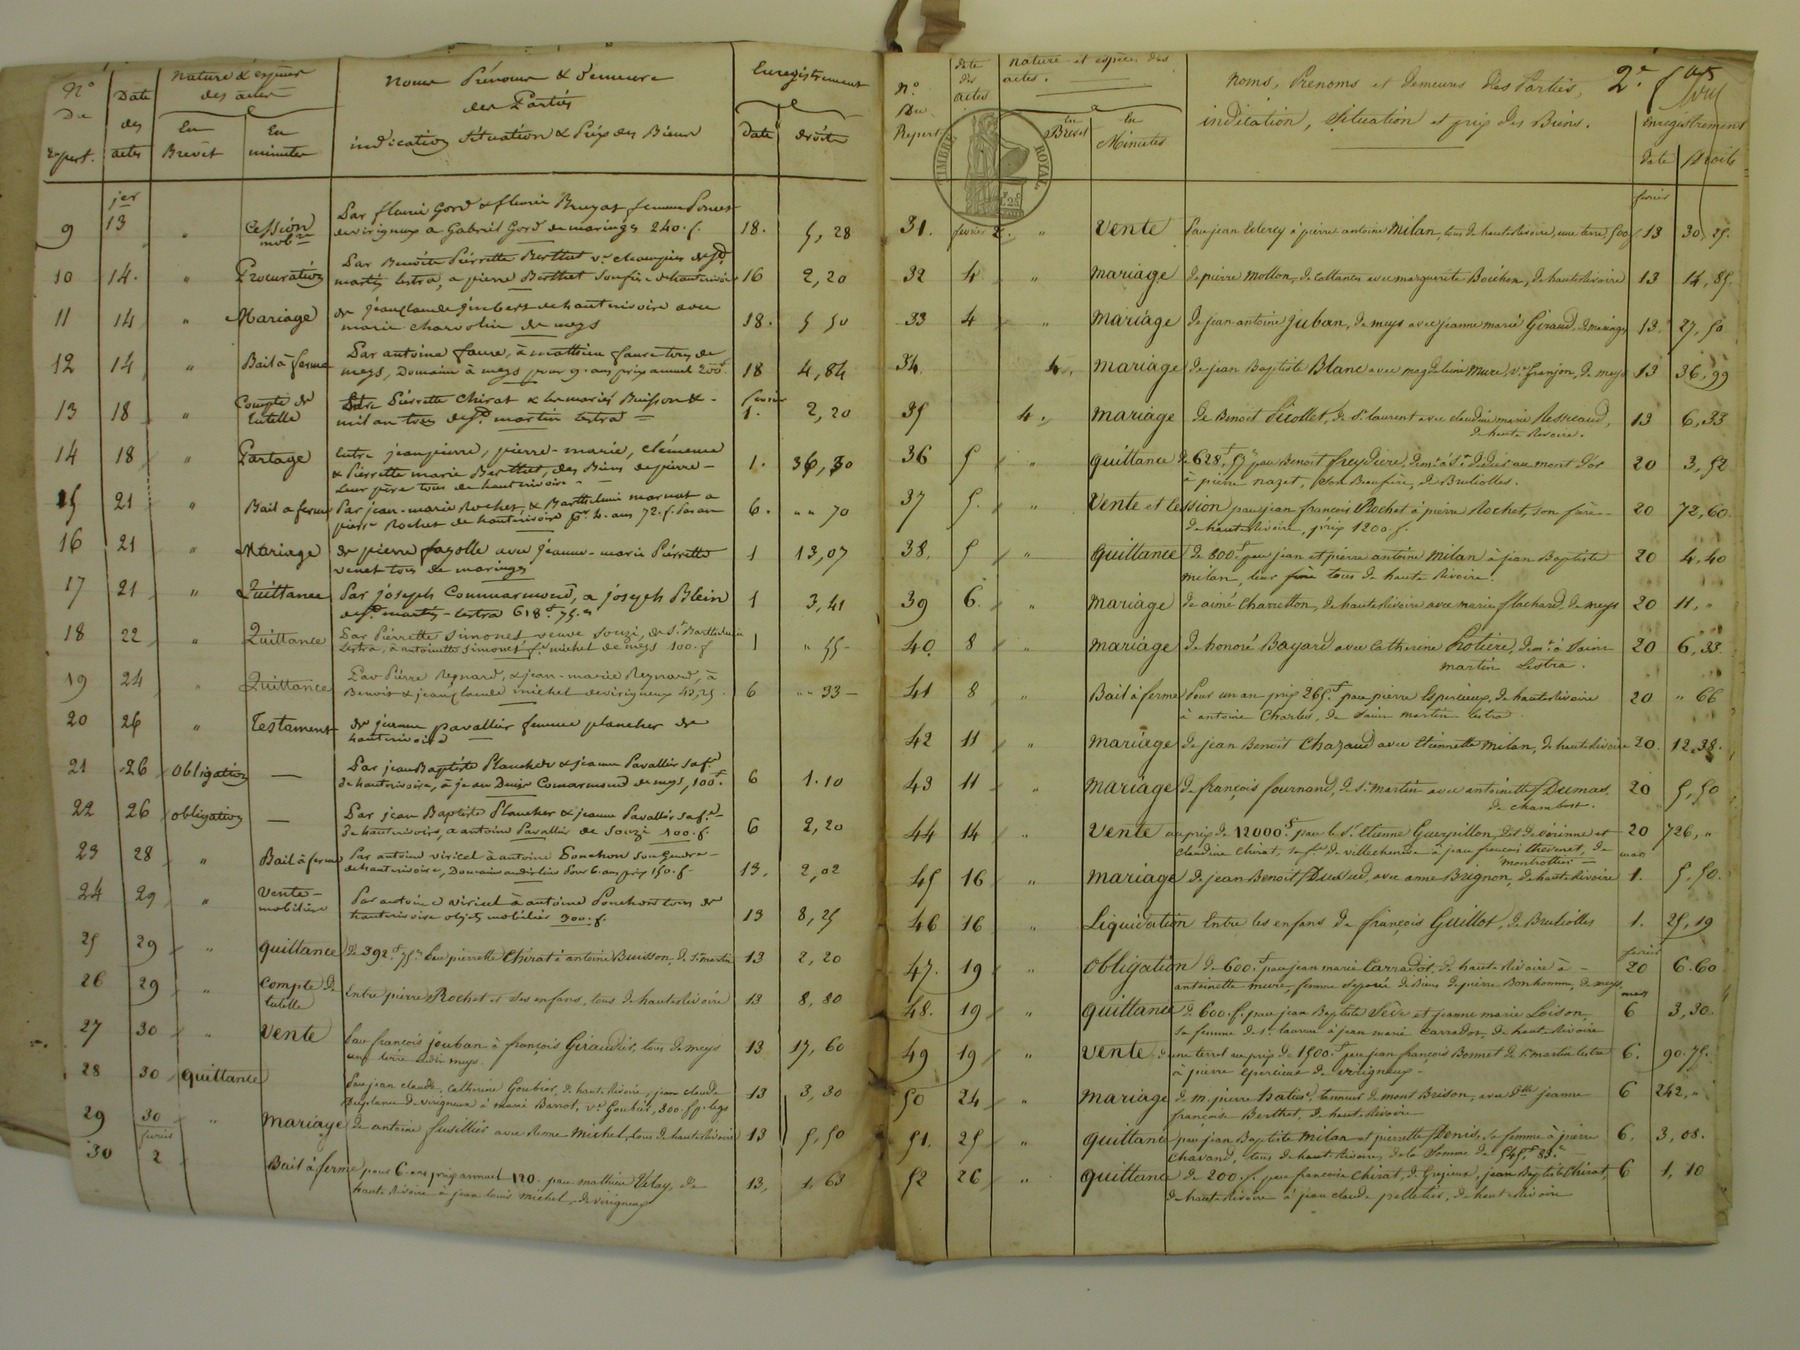 N° Date Nature & espèces Noms Prénoms & demeure Enregistrement
De des des actes des Parties
Repert. actes En Brevet En minutes indication Situation & Prix des Biens Date droits
jer
9 13 " Cession mobre Par fleurie Gord & fleurie Bruyas femme Poncet 18. 5,28
de virigneux a Gabriel Gord de maringes 240. f.
10 14. " Procuration Par Benoite Pierrette Berthet ve 16 2,20
martin lestra, a pierre Berthet son frère de hauterivoire
11 14 " Mariage de jean claude jimbert de hauterivoire avec 18. 5 50
marie charvolin de meys
12 14 " Bail à ferme Par antoine faure, à mathieu faure tous de 18 4,84
meys, Domaine à meys pour 9. ans prix annuel 200f
13 18 " Compte de tutelle Entre Pierrette Chirat & les mariés Buisson & février 1. 2,20
milan tous de St martin lestra
14 18 " Partage Entre jean pierre, pierre-marie, clémence 1. 36,30
& Pierrette marie Berthet, des Biens de pierre
Leur père tous de hauterivoire
15 21 " Bail a ferme Par jean-marie Rochet & Barthelemi marnat a 6. " 70
pierre Rochet de hauterivoire pr 4. ans 72. f. par an
16 21 " Mariage de pierre fayolle avec jeanne-marie Pierrette 1 13,07
venet tous de maringes
17 21 " Quittance Par joseph Commarmond, a joseph Blein 1 3,41
de St martin-lestra 618f 75.c
18 22 " Quittance Par Pierrette Simonet, veuve Souzi, de St Barthelemi 1 " 55
lestra, à antoinette Simonet fe michel de meys 100. f
19 24 " Quittance Par Pierre Reynard, & jean-marie Reynard, à 6 " 33
Benoit & jean claude michel de virigneux 42,25.
20 26 " Testament de jeanne pavallier femme plancher de
hauterivoire
21 26 obligation — Par jean Baptiste Plancher & jeanne Pavallier sa fe 6 1.10
de hauterivoire, à jean Denis Comarmond de meys, 100f.
22 26 obligation — Par jean Baptiste Plancher & jeanne Pavallier sa fe 6 2,20
de hauterivoire, a antoine Pavallier de Souzi 200. f.
23 28 " Bail à ferme Par antoine viricel à antoine Ponchon son Gendre 13. 2,02
de hauterivoire, Domaine audit lieu Pour 6. ans prix 150. f.
24 29 " Vente mobilière Par antoine viricel à antoine Ponchon tous de 13 8,25
hauterivoire objets mobiliers 300. f.
25 29 " quittance de 392.f 75c par pierrette Chirat à antoine Buisson, de St martin 13 2,20
26 29 " Compte de tutelle Entre pierre Rochet et ses enfans, tous de haute Rivoire 13 8,80
27 30 " Vente Par françois jouban à françois Giraudier, tous de meys 13 17,60
une terre audit meys.
28 30 quittance Par jean claude, catherine Goubier, de haute Rivoire, jean claude 13 3,30
Duplame de virigneux à marie Banot, ve Goubier, 300. f. pr legs
29 30 " Mariage de antoine fusillier avec Reine Michel, tous de haute Rivoire 13 5,50
30 février 2 Bail à ferme pour 6. ans prix annuel 120. par mathieu Vélay, de 13, 1,63
haute Rivoire à jean louis michel, de virigneux
N° Du Repert. date des actes nature et espèces des actes. en Brevet en Minutes
Noms, Prenoms et Demeures Des Parties,
indication, Situation et prix des Biens.
2e
Enregistrement date Droits
TIMBRE ROYAL
février
31. février 2. " Vente Par jean leclercy à pierre antoine Milan, tous de haute Rivoire, une terre, 500f 13 30,25.
32 4 " Mariage de pierre Mollon, de Cottance avec marguerite Bouchon, de haute Rivoire 13 14,85.
33 4 " Mariage de jean antoine Juban, de meys avec jeanne marie Giraud, de maringes 13. 27,50
34. 4. Mariage de jean Baptiste Blanc avec magdeleine Mure, ve franjon, de meys 13 36,99
35 4. Mariage de Benoit Picollet, de St laurent avec claudine marie Ressicaud, 13 6,33
de haute Rivoire.
36 5 " quittance de 628f,57c par Benoit freydiere, demt à St Didier au mont d'or 20 3,52
à pierre nazet, son Beaufrère, de Brullioles.
37 5. " Vente et Cession par jean françois Rochet à pierre Rochet, son frère 20 72,60.
de haute Rivoire, prix 1200. f.
38. 5 " Quittance de 800.f par jean et pierre antoine Milan à jean Baptiste 20 4,40
Milan, leur frère tous de haute Rivoire.
39 6. " Mariage de aimé Charretton, de haute Rivoire avec marie flachard, de meys 20 11, "
40. 8 " Mariage de honoré Bayard avec Catherine Protiere, demt à Saint 20 6,33
martin Lestra.
41 8 " Bail à ferme Pour un an prix 265.f par pierre Esperieux, de haute Rivoire 20 " 66
à antoine Charles, de Saint martin lestra
42 11 " Mariage de jean Benoit Chazaud avec Etiennette Milan, de haute Rivoire 20. 12,38.
43 11 " Mariage de françois fournand, de St Martin avec antoinette Dumas, 20 5,50
de chambost.
44 14 " Vente au prix de 12000.f par le Sr Etienne Guerpillon, dit de vérinne et 20 726, "
claudine Chirat, sa fe de villechenève à jean françois thevenet, de
Montrottier
mars
45 16 " Mariage de jean Benoit Dussud, avec anne Brignon, de haute Rivoire 1. 5,50.
46 16 " Liquidation Entre les enfans de françois Guillot, de Brulioles 1. 25,19
février
47. 19 " Obligation de 600.f par jean marie Carradot, de haute Rivoire à 20 6.60
antoinette mure, femme séparée de Biens de pierre Bonhomme, de meys.
mars
48. 19 " quittance de 600. f. par jean Baptiste Sève et jeanne marie Loison 6 3,30.
sa femme de St laurent à jean marie Carradot, de haute Rivoire
49 19 " Vente d'une terre au prix de 1500.f par jean françois Bonnet de St martin lestra 6. 90.75.
à pierre Esperieux de virigneux
50 24 " Mariage de m. pierre Batisse, tanneur de mont Brison, avec Dlle jeanne 6 242, "
françoise Berthet, de haute Rivoire
51. 25 " quittance par jean Baptiste Milan et pierrette Denis, sa femme à pierre 6. 3,08.
Chavand, tous de haute Rivoire, de la Somme de 545f. 83.c
52 26 " quittance de 200. f. par françoise Chirat, de Grezieux, jean Baptiste Chirat, 6 1,10
de haute Rivoire à jean claude pelletier, de haute Rivoire